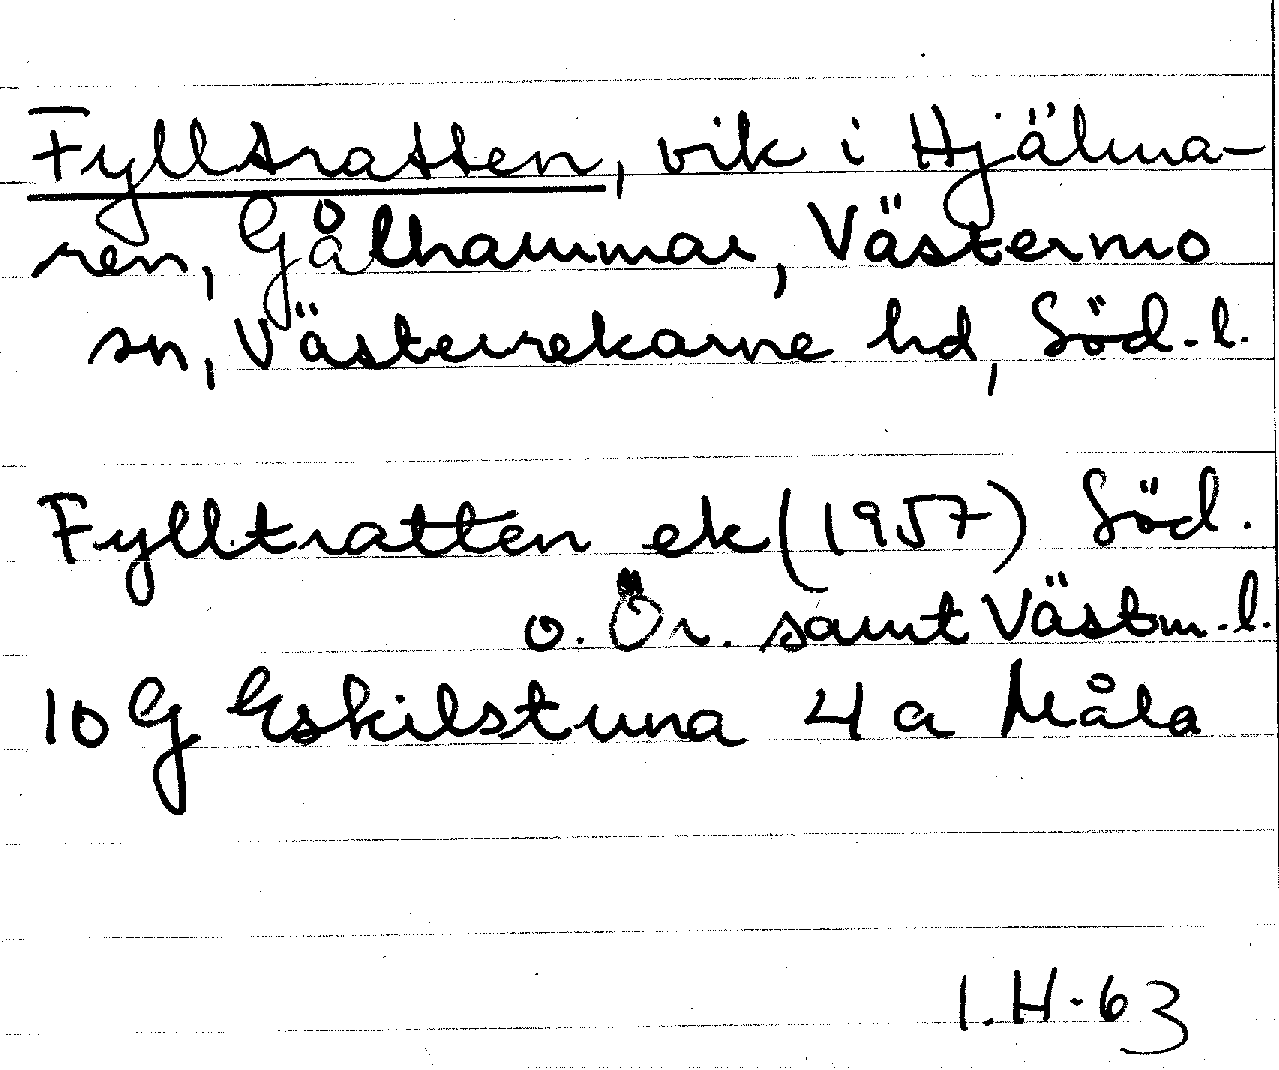 Fylltratten, vik i Hjälma-
ren, Gålhammar, Västermo
sn, Västerrekarne hd, Söd.l.
Fylltratten ek (1957) Söd.
o. Ör. samt Västm.l.
10G Eskilstuna 4a Måla
I.H-63